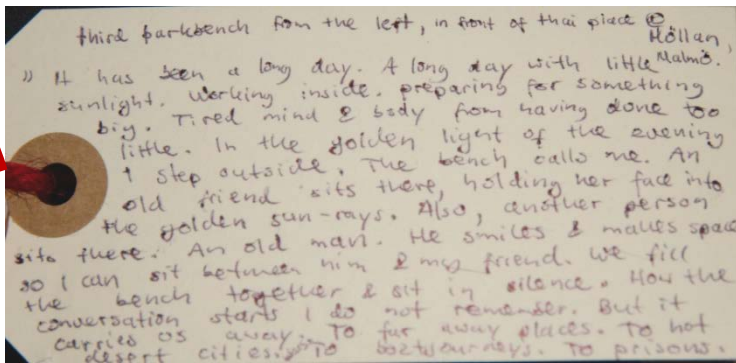 third parkbench from the left, in front of thai place @ Möllan, Malmö.
" It has been a long day. A long day with little
sunlight. Working inside. preparing for something
big. Tired mind & body from having done too
little. In the golden light of the evening
I step outside. The bench calls me. An
old friend sits there, holding her face into
the golden sun-rays. Also, another person
sits there. An old man. He smiles & makes space
so I can sit between him & my friend. We fill
the bench together & sit in silence. How the
conversation starts I do not remember. But it
carries us away. To far away places. To hot
desert cities. To boatjourneys. To prisons.